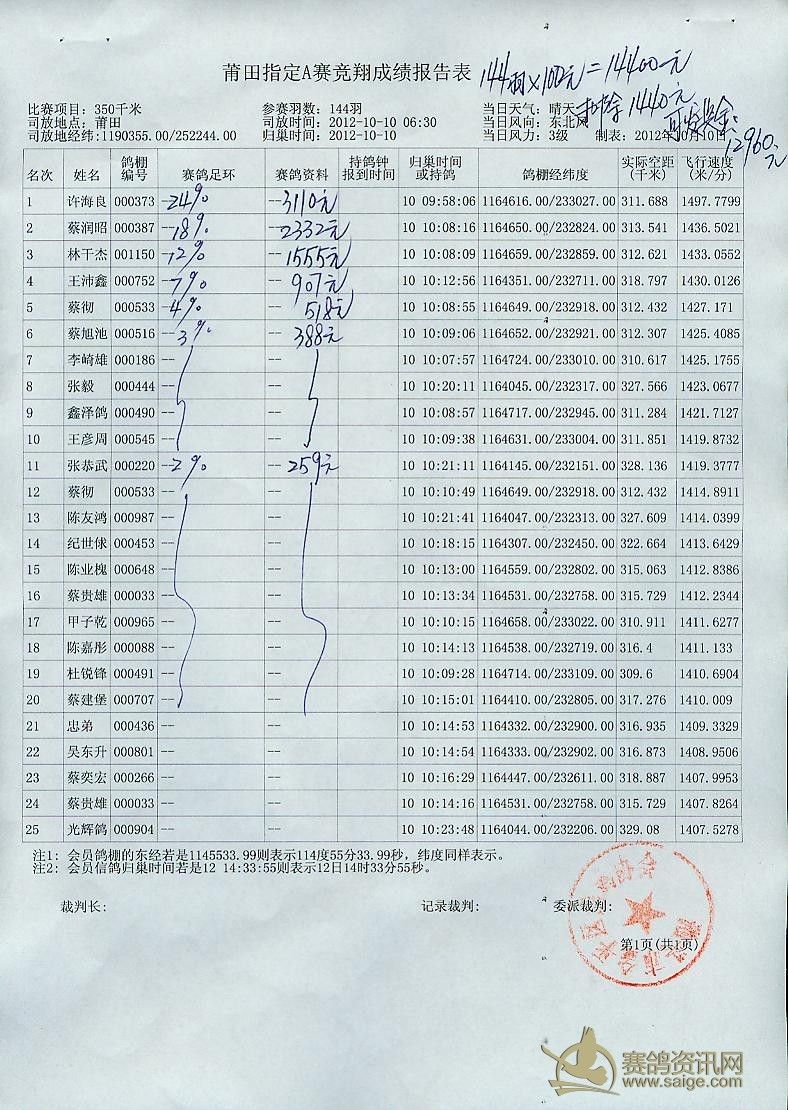 莆田指定A赛竞翔成绩报告表
144羽×100元=14400元
扣除1440元
可发奖金:
12960元
比赛项目: 350千米 参赛羽数: 144羽 当日天气: 晴天
司放地点: 莆田 司放时间: 2012-10-10 06:30 当日风向: 东北风
司放地经纬:1190355.00/252244.00 归巢时间: 2012-10-10 当日风力: 3级 制表: 2012年10月10日
名次 姓名 鸽棚编号 赛鸽足环 赛鸽资料 持鸽钟报到时间 归巢时间或持鸽 鸽棚经纬度 实际空距(千米) 飞行速度(米/分)
1 许海良 000373 --24% --3110元 10 09:58:06 1164616.00/233027.00 311.688 1497.7799
2 蔡润昭 000387 --18% --2332元 10 10:08:16 1164650.00/232824.00 313.541 1436.5021
3 林干杰 001150 --12% --1555元 10 10:08:09 1164659.00/232859.00 312.621 1433.0552
4 王沛鑫 000752 --7% --907元 10 10:12:56 1164351.00/232711.00 318.797 1430.0126
5 蔡彻 000533 --4% --518元 10 10:08:55 1164649.00/232918.00 312.432 1427.171
6 蔡旭池 000516 --3% --388元 10 10:09:06 1164652.00/232921.00 312.307 1425.4085
7 李崎雄 000186 -- -- 10 10:07:57 1164724.00/233010.00 310.617 1425.1755
8 张毅 000444 -- -- 10 10:20:11 1164045.00/232317.00 327.566 1423.0677
9 鑫泽鸽 000490 -- -- 10 10:08:57 1164717.00/232945.00 311.284 1421.7127
10 王彦周 000545 -- -- 10 10:09:38 1164631.00/233004.00 311.851 1419.8732
11 张恭武 000220 --2% --259元 10 10:21:11 1164145.00/232151.00 328.136 1419.3777
12 蔡彻 000533 -- -- 10 10:10:49 1164649.00/232918.00 312.432 1414.8911
13 陈友鸿 000987 -- -- 10 10:21:41 1164047.00/232313.00 327.609 1414.0399
14 纪世俅 000453 -- -- 10 10:18:15 1164307.00/232450.00 322.664 1413.6429
15 陈业槐 000648 -- -- 10 10:13:00 1164559.00/232802.00 315.063 1412.8386
16 蔡贵雄 000033 -- -- 10 10:13:34 1164531.00/232758.00 315.729 1412.2344
17 甲子乾 000965 -- -- 10 10:10:15 1164658.00/233022.00 310.911 1411.6277
18 陈嘉彤 000088 -- -- 10 10:14:13 1164538.00/232719.00 316.4 1411.133
19 杜锐锋 000491 -- -- 10 10:09:28 1164714.00/233109.00 309.6 1410.6904
20 蔡建堡 000707 -- -- 10 10:15:01 1164410.00/232805.00 317.276 1410.009
21 忠弟 000436 -- -- 10 10:14:53 1164332.00/232900.00 316.935 1409.3329
22 吴东升 000801 -- -- 10 10:14:54 1164333.00/232902.00 316.873 1408.9506
23 蔡奕宏 000266 -- -- 10 10:16:29 1164447.00/232611.00 318.887 1407.9953
24 蔡贵雄 000033 -- -- 10 10:14:16 1164531.00/232758.00 315.729 1407.8264
25 光辉鸽 000904 -- -- 10 10:23:48 1164044.00/232206.00 329.08 1407.5278
注1: 会员鸽棚的东经若是1145533.99则表示114度55分33.99秒，纬度同样表示。
注2: 会员信鸽归巢时间若是12 14:33:55则表示12日14时33分55秒。
裁判长: 记录裁判: 委派裁判:
第1页(共1页)
赛鸽资讯网
www.saige.com